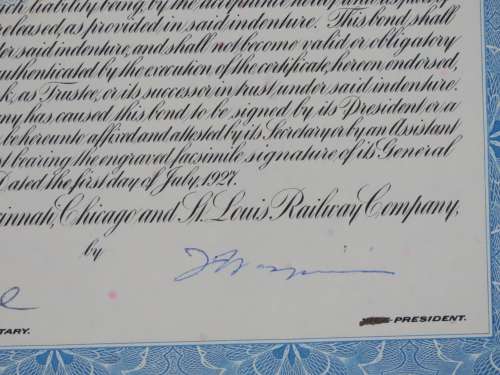 liability being, by the acceptance hereof
released, as provided in said indenture. This bond, shall
said indenture, and shall not become valid or obligatory
authenticated by the execution of the certificate, hereon endorsed,
as Trustee, or its successor in trust under said indenture.
has caused this bond to be signed by its President or a
be hereunto affixed and attested by its Secretary or by an Assistant
bearing the engraved facsimile signature of its General
Dated the first day of July, 1927.
innah, Chicago and St. Louis Railway Company,
by
TARY.
PRESIDENT.